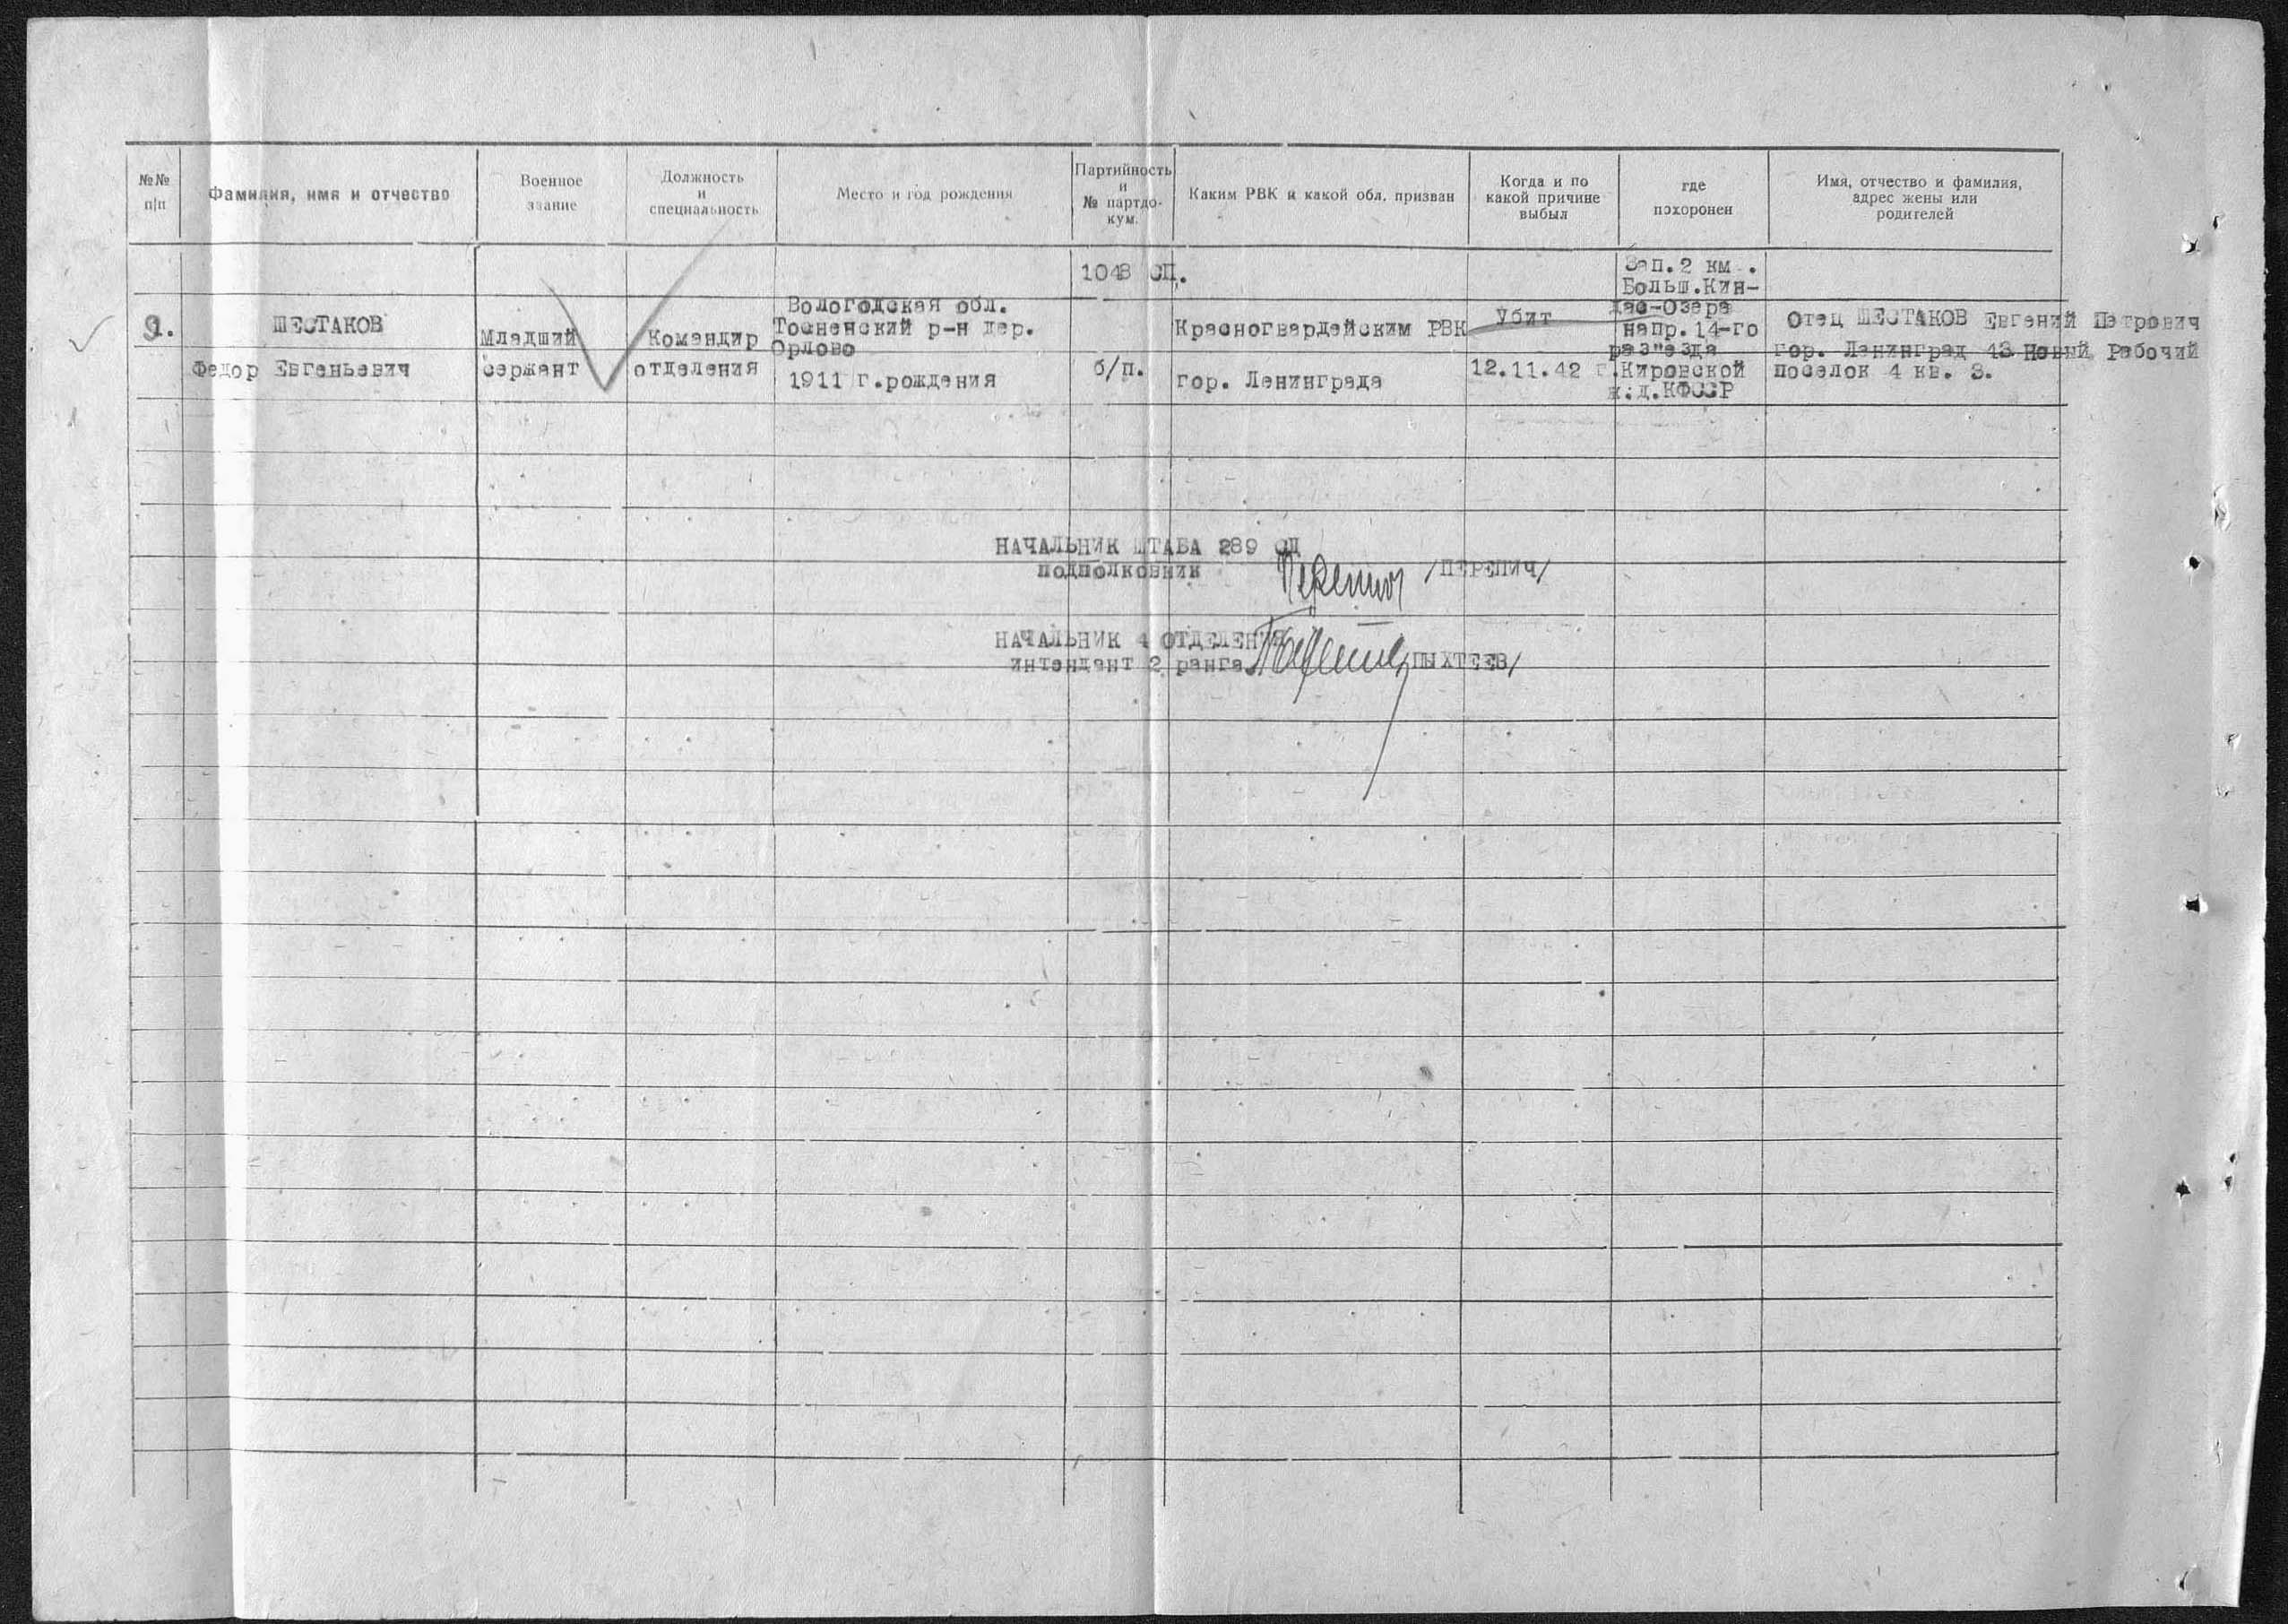 №№ п|п
Фамилия, имя и отчество
Военное звание
Должность и специальность
Место и год рождения
Партийность и № партдокум.
Каким РВК и какой обл. призван
Когда и по какой причине выбыл
где похоронен
Имя, отчество и фамилия, адрес жены или родителей
1048 СП.
9.
ШЕСТАКОВ
Федор Евгеньевич
Младший
сержант
Командир
отделения
Вологодская обл.
р-н дер.
Орлово
1911 г.рождения
б/п.
Красногвардейским РВК
гор. Ленинграда
Убит
12.11.42 г.
Зап.2 км.
Больш.Кин-
дас-Озера
напр.14-го
раз"езда
Кировской
ж.д.КФССР
Отец ШЕСТАКОВ Евгений Петрович
гор. Ленинград 43 Новый Рабочий
поселок 4 кв. 3.
НАЧАЛЬНИК ШТАБА 289 СД
подполковник
/ПЕРЕПИЧ/
НАЧАЛЬНИК 4 ОТДЕЛЕНИЯ
интендант 2 ранга
/ПЫХТЕЕВ/